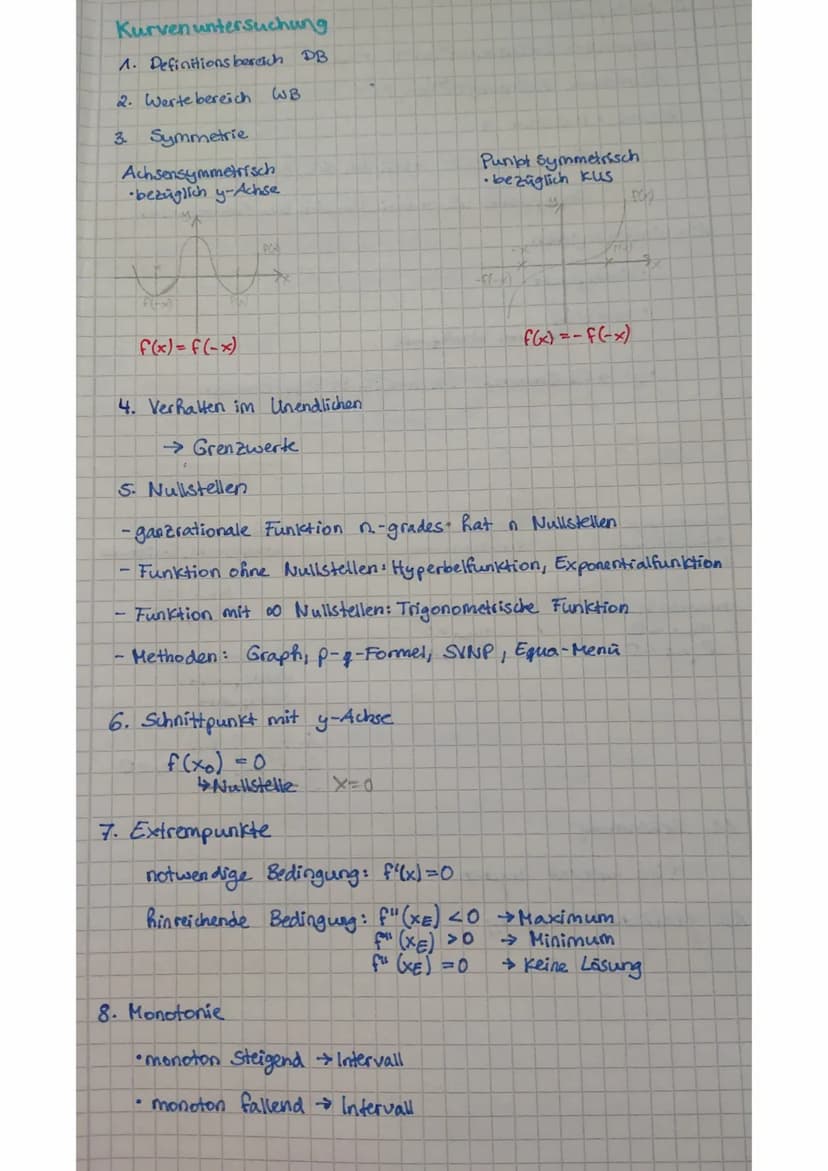 Kurvenuntersuchung
1. Definitionsbereich DB
2. Wertebereich WB
3. Symmetrie
Achsensymmetrisch
• bezüglich y-Achse
Punktsymmetrisch
• bezüglich KUS
y
f(x)
x
f(-x)
f(x)
y
f(x)
-x
f(x)
x
x
-f(-x)
f(x) = f(-x)
f(x) = - f(-x)
4. Verhalten im Unendlichen
→ Grenzwerte
5. Nullstellen
- ganzrationale Funktion n-grades hat n Nullstellen
- Funktion ohne Nullstellen: Hyperbelfunktion, Exponentialfunktion
- Funktion mit ∞ Nullstellen: Trigonometrische Funktion
- Methoden: Graph, p-q-Formel, SVNP, Equa-Menü
6. Schnittpunkt mit y-Achse
f(x₀) = 0
↳ Nullstelle x=0
7. Extrempunkte
notwendige Bedingung: f'(x) = 0
hinreichende Bedingung: f''(xE) < 0 → Maximum
f''(xE) > 0 → Minimum
f''(xE) = 0 → keine Lösung
8. Monotonie
• monoton steigend → Intervall
• monoton fallend → Intervall